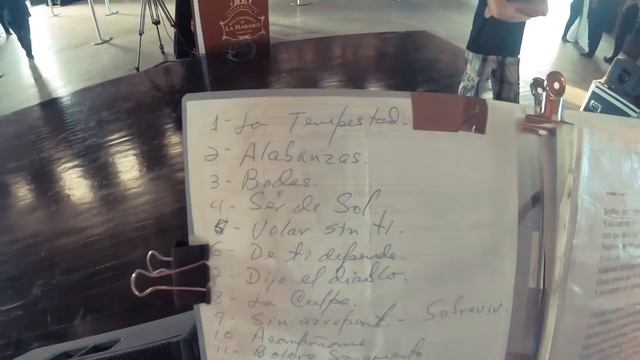 LA HABANA
1- La Tempestad.
2- Alabanzas.
3- Bodas.
4- Ser de Sol.
5- Volar sin ti.
6- De ti depende.
7- Dijo el diablo.
8- La Culpa.
9- Sin arrepent. - Sobreviv.
10 Acompáñame
11- Bolero